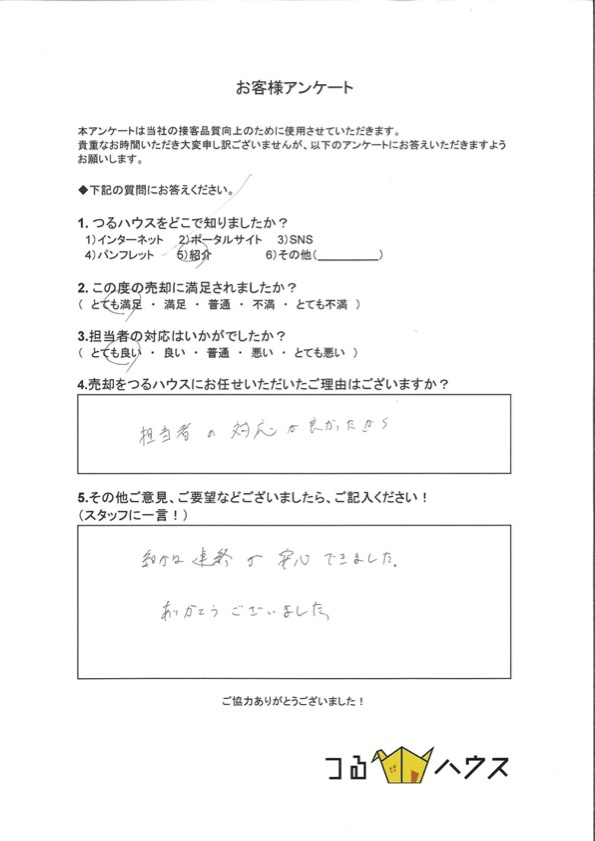 お客様アンケート
本アンケートは当社の接客品質向上のために使用させていただきます。
貴重なお時間いただき大変申し訳ございませんが、以下のアンケートにお答えいただきますよう
お願いします。
◆下記の質問にお答えください。
1. つるハウスをどこで知りましたか？
1)インターネット 2)ポータルサイト 3)SNS
4)パンフレット 5)紹介 6)その他(＿＿＿＿＿)
2. この度の売却に満足されましたか？
( とても満足 ・ 満足 ・ 普通 ・ 不満 ・ とても不満 )
3.担当者の対応はいかがでしたか？
( とても良い ・ 良い ・ 普通 ・ 悪い ・ とても悪い )
4.売却をつるハウスにお任せいただいたご理由はございますか？
担当者の対応が良かったから
5.その他ご意見、ご要望などございましたら、ご記入ください！
（スタッフに一言！）
細かな連絡が安心できました。
ありがとうございました。
ご協力ありがとうございました！
つるハウス